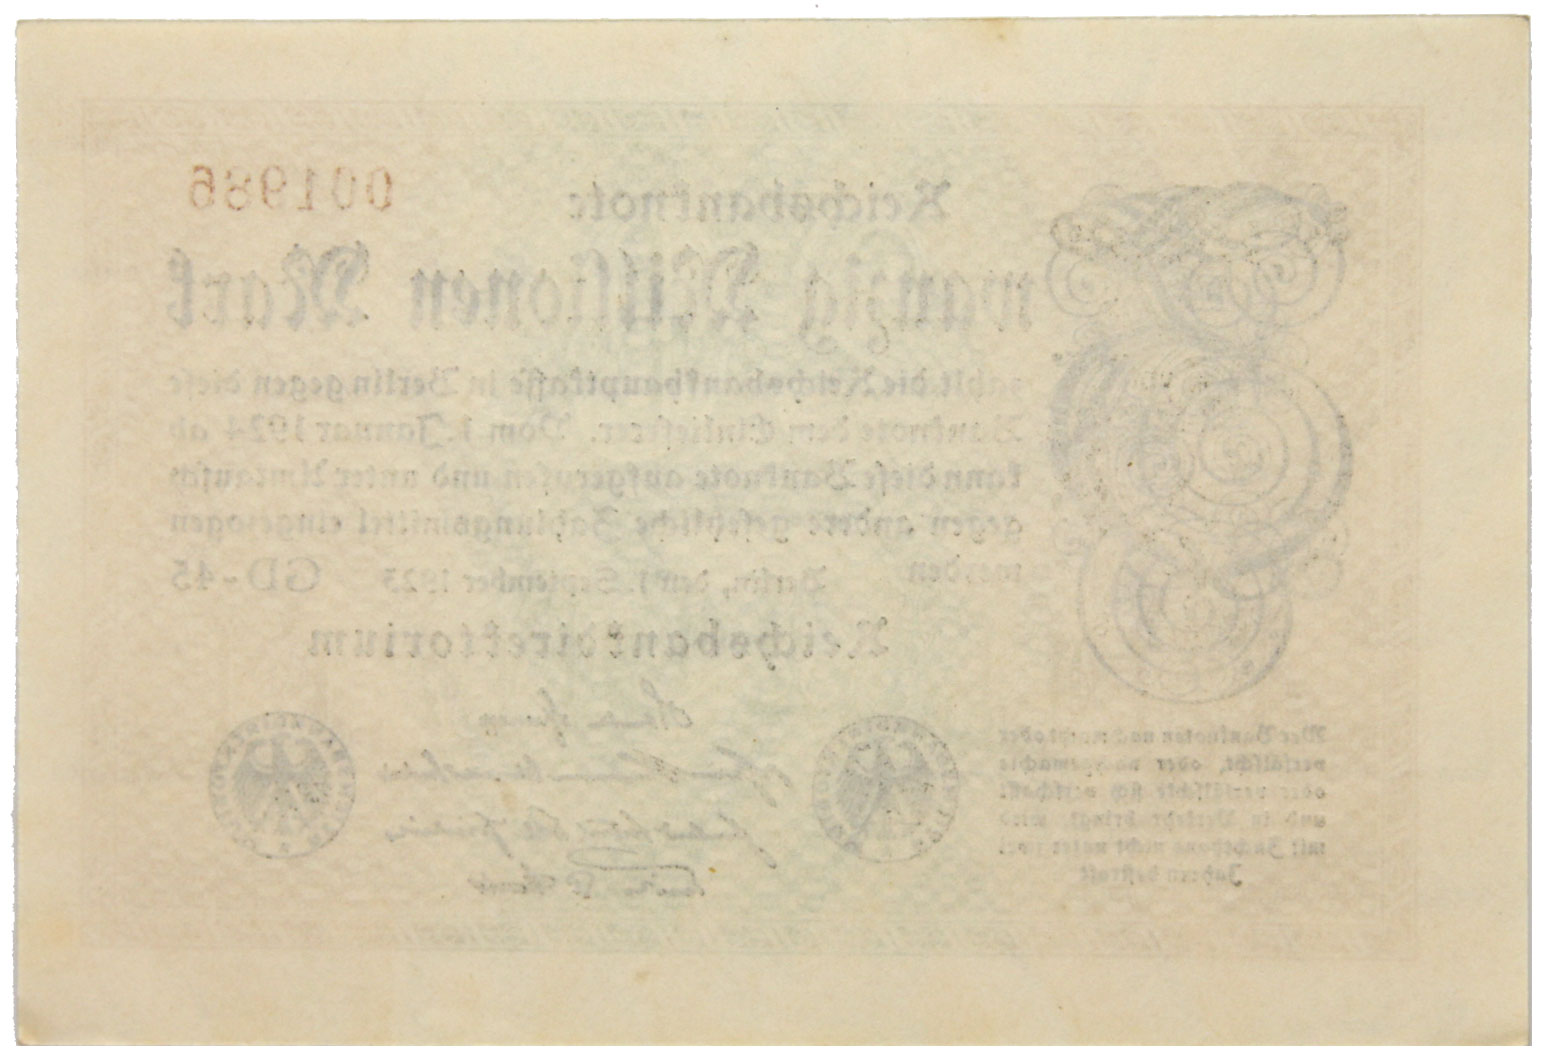 001986
Reichsbanknote
wanzig Millionen Mark
zahlt die Reichsbankhauptkasse in Berlin gegen diese
Banknote dem Einlieferer. Vom 1. Januar 1924 ab
kann diese Banknote aufgerufen und unter Umtausch
gegen andere gesetzliche Zahlungsmittel eingezogen
werden
Berlin, den 1. September 1923 GD-45
Reichsbankdirektorium
Wer Banknoten nachmacht oder
verfälscht, oder nachgemachte
oder verfälschte sich verschafft
und in Verkehr bringt, wird
mit Zuchthaus nicht unter zwei
Jahren bestraft